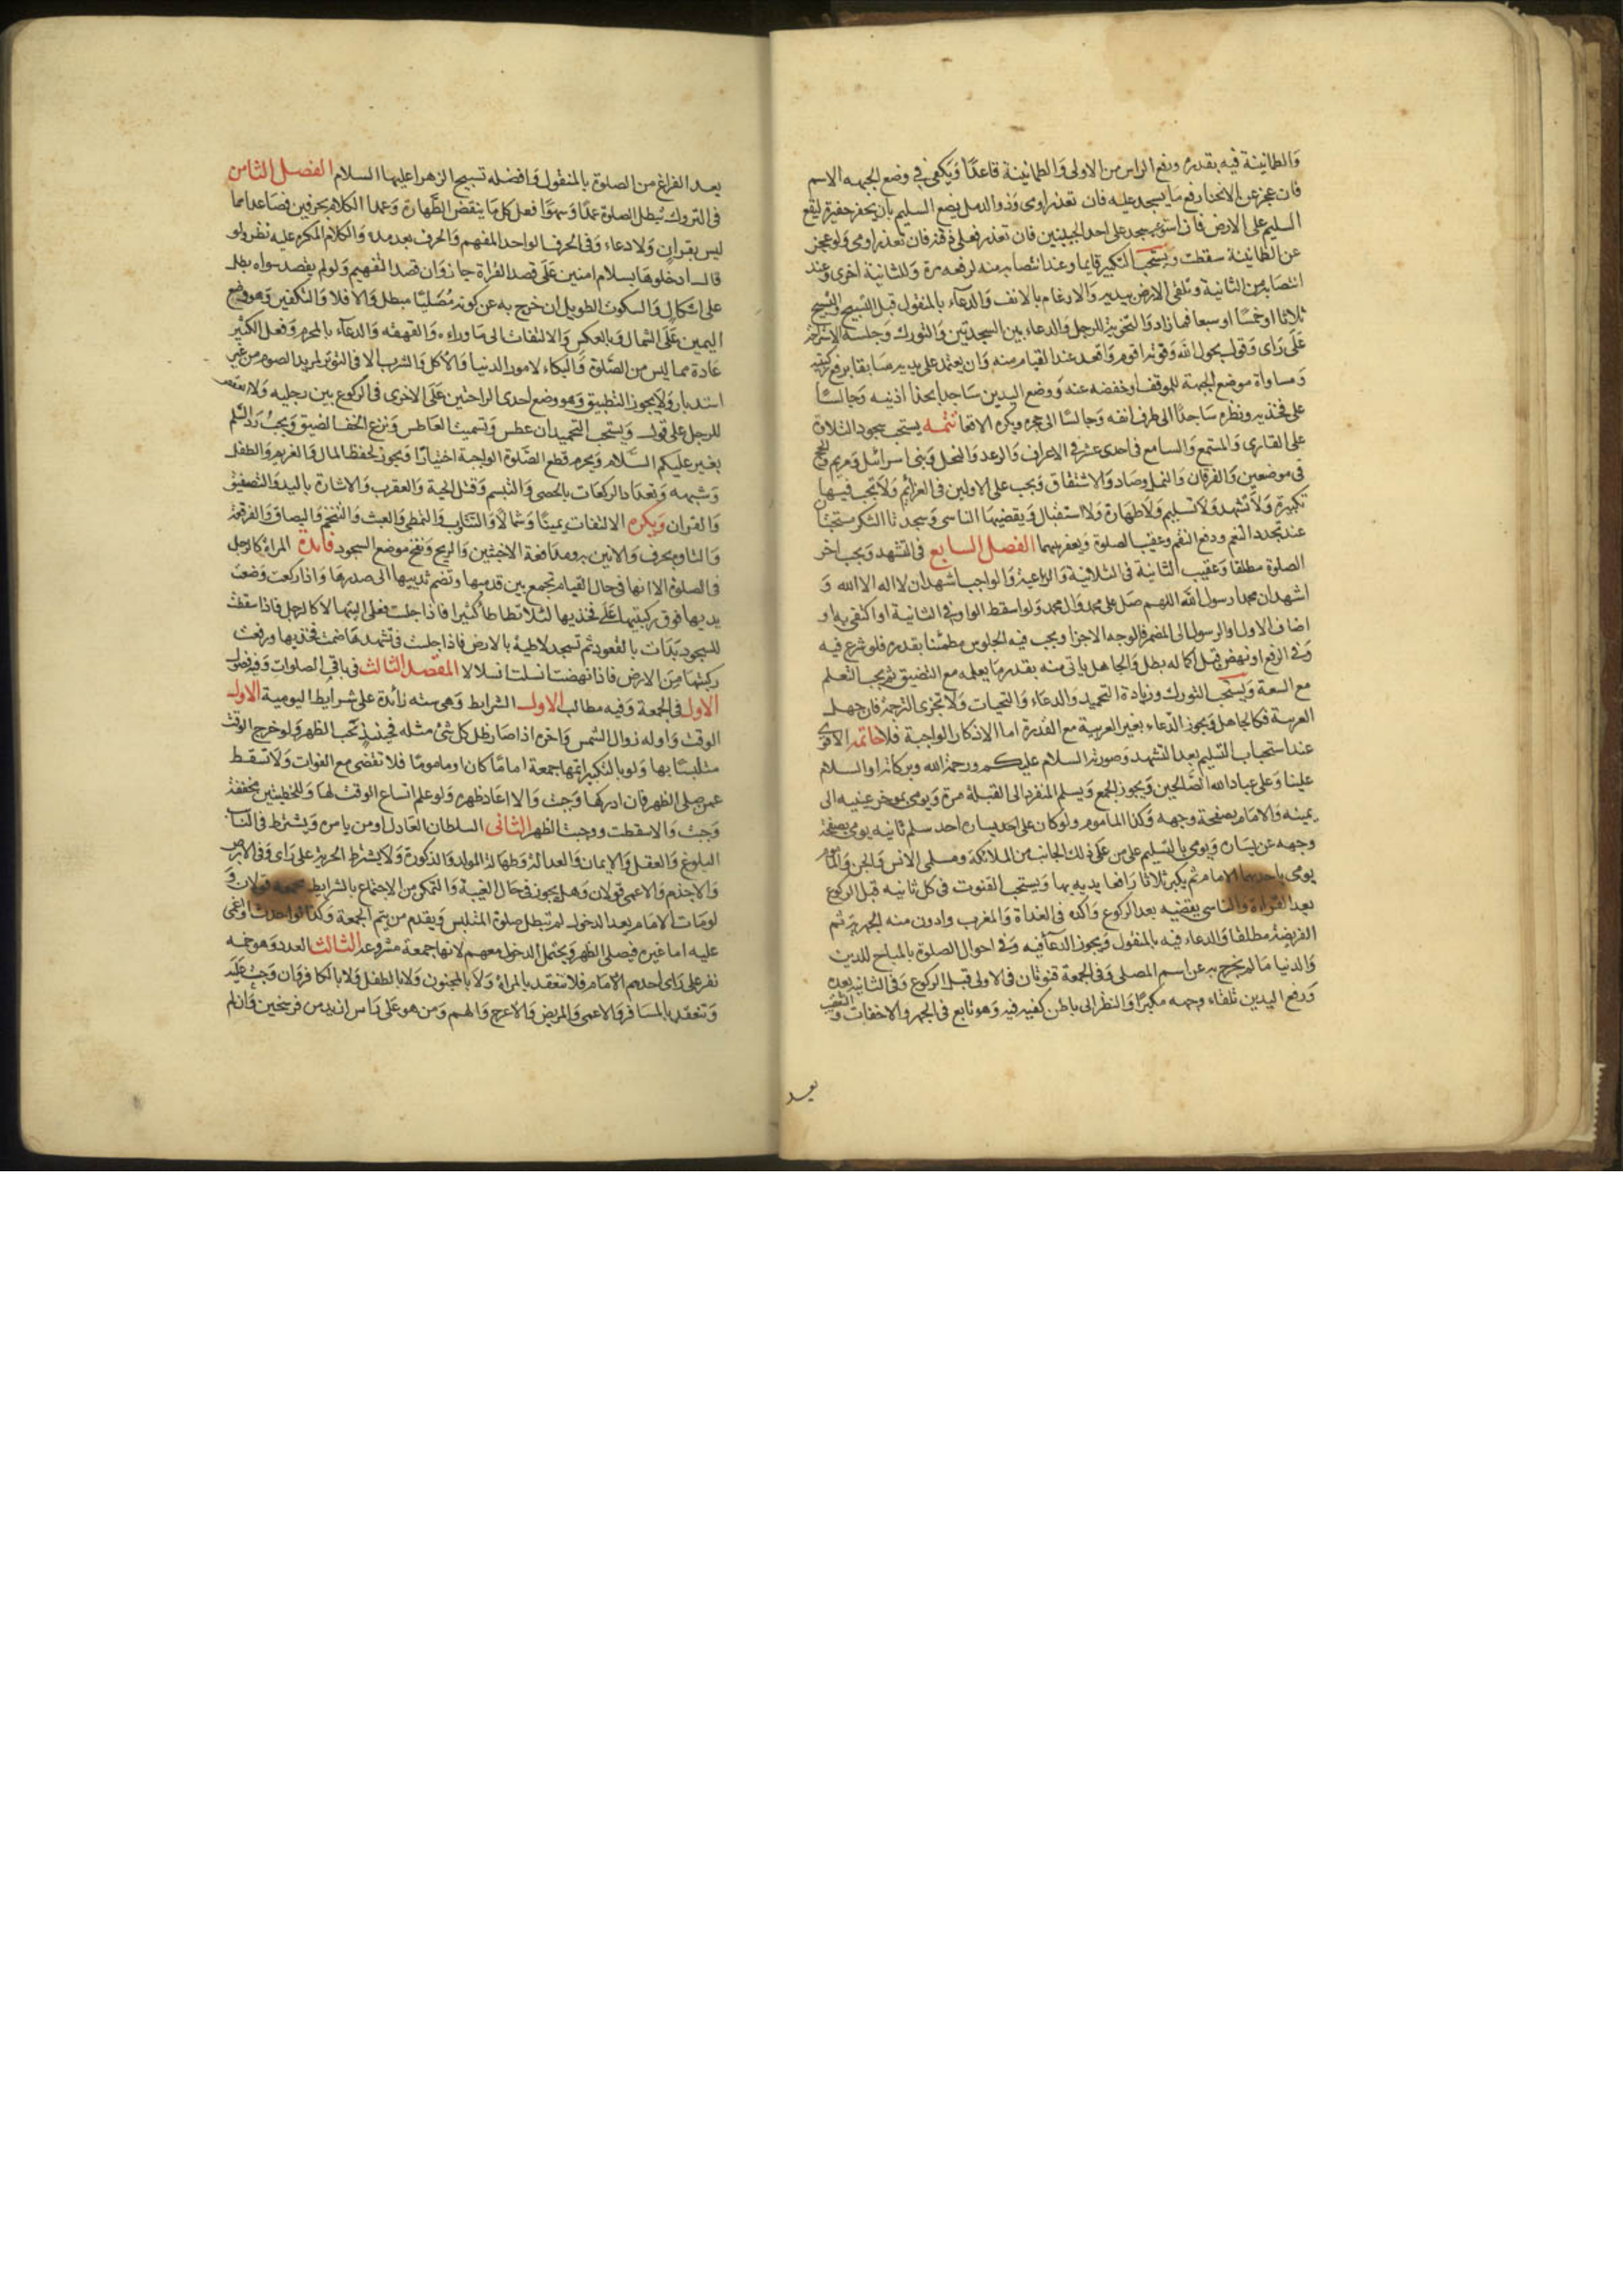 والطمانينة فيه بقدره ورفع الراس من الاولى والطمانينة قاعدًا ويكفي في وضع الجبهه الاسم
فان عجز عن الانحنا رفع ما يسجد عليه فان تعذر اومى وذو الدمل يضع السليم بان يحفر حفيرة ليقع
السليم على الارض فان استوعب سجد على احد الجبينين فان تعذر فعلى ذقنه فان تعذر اومى ولو عجز
عن الطمانينة سقطت ويستحب التكبير قايما وعند انتصابه منه لرفعه مرة وللثانية اخرى وعند
انتصابه من الثانية وتلقى الارض بيديه والارغام بالانف والدعاء بالمنقول قبل التسبيح والتسبيح
ثلاثا او خمسًا او سبعا فما زاد والتخوية للرجل والدعاء بين السجدتين والتورك وجلسة الاستراحة
على راى وقول بحول الله وقوته اقوم واقعد عند القيام منه وان يعتمد على يديه سابقا برفع ركبتيه
ومساواة موضع الجبهة للموقف او خفضه عنه ووضع اليدين ساجدا بحذا اذنيه وجالسًا
على فخذيه ونظره ساجدًا الى طرف انفه وجالسًا الى حجره ويكره الاقعا تتمه يستحب سجود التلاوة
على القارى والمستمع والسامع فى احدى عشر فى الاعراف والرعد والنحل وبنى اسرائيل ومريم والحج
فى موضعين والفرقان والنمل وصاد والانشقاق ويجب على الاولين فى العزايم ولا يجب فيها
تكبيرة ولا تشهد ولا تسليم ولا طهارة ولا استقبال ويقضيها الناسى وسجدتا الشكر مستحبتان
عند تجدد النعم ودفع النقم وعقيب الصلوة ويعفر بينهما الفصل السابع فى التشهد ويجب اخر
الصلوة مطلقا وعقيب الثانية فى الثلاثية والرباعية والواجب اشهد ان لا اله الا الله و
اشهد ان محمدا رسول الله اللهم صل على محمد وال محمد ولو اسقط الواو فى الثانية او اكتفى به او
اضاف الاول او الرسول الى المضمر فالوجه الاجزا ويجب فيه الجلوس مطمئنا بقدره فلو شرع فيه
وفى الرفع او نهض قبل اكماله بطل والجاهل ياتى منه بقدر ما يعلمه مع التضيق ثم يجب التعلم
مع السعة ويستحب التورك وزيادة التحميد والدعاء والتحيات ولا تجزى الترجمة فان جهل
العربية فكالجاهل ويجوز الدعاء بغير العربية مع القدرة اما الاذكار الواجبة فلا خاتمه الاقوى
عند استحباب التسليم بعد التشهد وصورته السلام عليكم ورحمة الله وبركاته او السلام
علينا وعلى عباد الله الصالحين ويجوز الجمع ويسلم المنفرد الى القبلة مرة ويومى بموخر عينيه الى
يمينه والامام بصفحة وجهه وكذا الماموم ولو كان على احد يساره احد سلم ثانيه يومى بصفحة
وجهه عن يساره ويومى بالتسليم على من على ذلك الجانب من الملائكة ومسلمى الانس والجن والماموم
يومى باحديهما الامام ثم يكبر ثلاثا رافعا يديه بها ويستحب القنوت فى كل ثانيه قبل الركوع
بعد القراءة والناسى يقضيه بعد الركوع واكده فى الغداة والمغرب وادون منه الجهرية ثم
الفريضة مطلقا والدعاء فيه بالمنقول ويجوز الدعا فيه وفى احوال الصلوة بالمباح للدين
والدنيا ما لم يخرج به عن اسم المصلى وفى الجمعة قنوتان فى الاولى قبل الركوع وفى الثانيه بعده
ورفع اليدين تلقاء وجهه مكبرًا والنظر الى باطن كفيه فيه وهو تابع فى الجهر والاخفات والتعقيب
بعد
بعد الفراغ من الصلوة بالمنقول وافضله تسبيح الزهرا عليها السلام الفصل الثامن
فى التروك تبطل الصلوة عمدًا وسهوًا فعل كل ما ينقض الطهارة وعمدا الكلام بحرفين فصاعدا مما
ليس بقران ولا دعاء وفى الحرف الواحد المفهم والحرف بعد مده والكلام المكره عليه نظر ولو
قال ادخلوها بسلام امنين على قصد القراة جاز وان قصد التفهيم ولو لم يقصد سواه بطل
على اشكال والسكوت الطويل ان خرج به عن كونه مُصَليًا مبطل والا فلا والتكفير وهو وضع
اليمين على الشمال وبالعكس والالتفات الى ما وراءه والقهقهه والدعاء بالمحرم وفعل الكثير
عادة مما ليس من الصلوة والبكاء لامور الدنيا والاكل والشرب الا فى الوتر لمريد الصوم من غير
استدبار ولا يجوز التطبيق وهو وضع احدى الراحتين على الاخرى فى الركوع بين رجليه ولا
للرجل على قول ويستحب التحميد ان عطس وتسميت العاطس ونزع الخف الضيق ويجب رد السلم
بغير عليكم السلام ويحرم قطع الصلوة الواجبة اختيارًا ويجوز لحفظ المال والغريم والطفل
وشبهه وتعداد الركعات بالحصى والتبسم وقتل الحية والعقرب والاشارة باليد والتصفيق
والقران ويكره الالتفات يمينًا وشمالًا والتثاوب والتمطى والعبث والتنخم والبصاق والفرقعة
والتاوه بحرف والانين به ومدافعة الاخبثين والريح ونفخ موضع السجود فايدة المراة كالرجل
فى الصلوة الا انها فى حال القيام تجمع بين قدميها وتضم ثدييها الى صدرها واذا ركعت وضعت
يديها فوق ركبتيها على فخذيها لئلا تطاطا كثيرا فاذا جلست فعلى اليتيها لا كالرجل فاذا سقطت
للسجود بدات بالقعود ثم تسجد لاطية بالارض فاذا جلست فى تشهدها ضمت فخذيها ورفعت
ركبتيها من الارض فاذا نهضت انسلت انسلالا المقصد الثالث فى باقى الصلوات وفيه فصول
الاول فى الجمعة وفيه مطالب الاول الشرايط وهى سته زائدة على شرايط اليومية الاول
الوقت واوله زوال الشمس واخره اذا صار ظل كل شئ مثله فحينئذ تجب الظهر ولو خرج الوقت
متلبسًا بها ولو بالتكبير اتمها جمعة امامًا كان او مامومًا فلا تقضى مع الفوات ولا تسقط
عمن صلى الظهر فان ادركها وجبت والا اعاد ظهره ولو علم اتساع الوقت لها وللخطبتين مخففة
وجبت والا سقطت ووجبت الظهر الثانى السلطان العادل او من يامره ويشترط فى النائب
البلوغ والعقل والايمان والعدالة وطهارة المولد والذكورة ولا يشترط الحرية على راى وفى الابرص
والاجذم والاعمى قولان وهل يجوز فى حال الغيبة والتمكن من الاجتماع بالشرايط قولان و
لو مات الامام بعد الدخول لم تبطل صلوة المتلبس ويقدم من يتم الجمعة وكذا لو احدث او اغمى
عليه اما غيره فيصلى الظهر ويحتمل الدخول معهم لانها جمعة مشروعة الثالث العدد وهو خمسه
نفر على راى احدهم الامام فلا تنعقد بالمراة ولا بالمجنون ولا بالطفل ولا بالكافر وان وجبت عليه
وتنعقد بالمسافر والاعمى والمريض والاعرج والهم ومن هو على راس ازيد من فرسخين وان لم